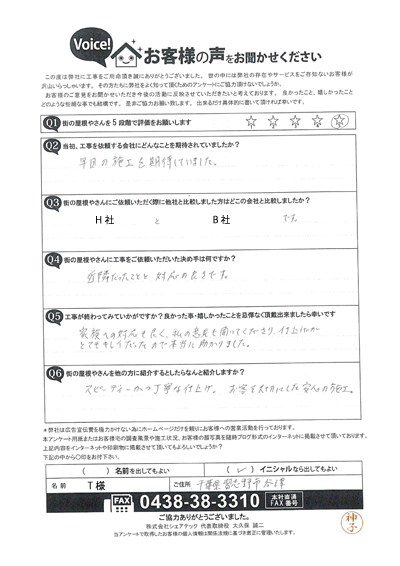 Voice!
お客様の声をお聞かせください
この度は弊社に工事をご用命頂き誠にありがとうございました。世の中には弊社の存在やサービスをご存知ないお客様が
沢山いらっしゃいます。その方たちに弊社をよく知って頂くためのアンケートにご協力頂けないでしょうか。
お客様のご意見をお聞かせいただき今後の活動に反映させていただきたいと考えております。良かったこと、嬉しかったこと
どのような些細な事でも結構です。是非ご協力お願い致します。出来るだけ具体的に書いて頂ければ幸いです。
Q1 街の屋根やさんを5段階で評価をお願いします
Q2 当初、工事を依頼する会社にどんなことを期待されていましたか?
早目の施工を期待していました。
Q3 街の屋根やさんにご依頼いただく際に他社と比較しました方はどこの会社と比較しましたか?
H社 と B社 です。
Q4 街の屋根やさんに工事をご依頼いただいた決め手は何ですか?
近隣だったことと対応の良さです。
Q5 工事が終わってみていかがですか?良かった事・嬉しかったことを忌憚なく頂戴出来ましたら幸いです
家族への対応も良く、私の意見も聞いてくださり、仕上りが
とてもキレイだったので本当に助かりました。
Q6 街の屋根やさんを他の方に紹介するとしたらなんと紹介しますか?
スピーディーかつ丁寧な仕上げ。お客を大切にした安心の施工。
*弊社は広告宣伝費を極力かけない為にホームページだけを頼りにお客様への営業活動を行っております。
本アンケート用紙またはお客様宅の調査風景や施工状況、お客様の顔写真を随時ブログ形式のインターネットに掲載させて頂いております。
上記内容をインターネットや印刷物に掲載させて頂いてもよろしいでしょうか?
下記の中から〇印をお付け下さい。
( ) 名前を出してもよい ( ✓ ) イニシャルなら出してもよい
名前 T様 ご住所 千葉県習志野市谷津
FAX 0438-38-3310 本社直通 FAX番号
ご協力ありがとうございました。
株式会社シェアテック 代表取締役 大久保 誠二
当アンケートで取得したお客様の個人情報は関係法令に基づき厳正に管理いたします。